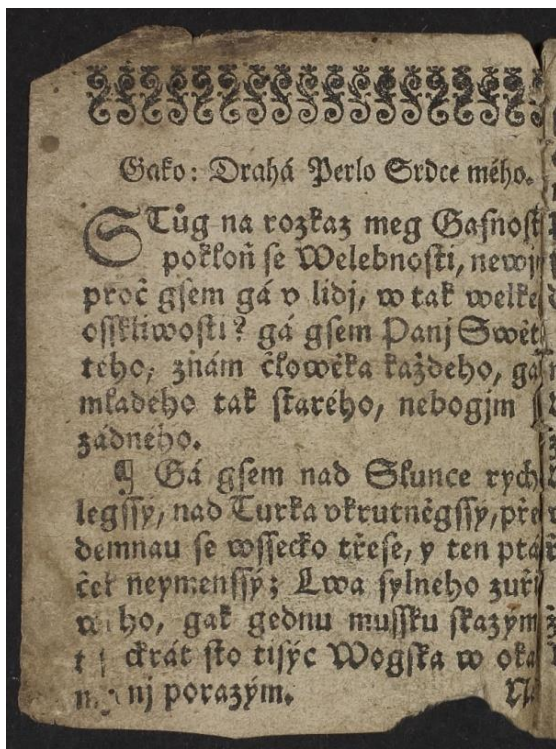 Gako: Drahá Perlo Srdce mého.
STůg na rozkaz meg Gasnost
pokloň se Welebnosti, newj
proč gsem gá v lidj, w tak welke
osskliwosti? gá gsem Panj Swět
teho, znám člowěka každeho, ga
mladeho tak starého, nebogjm
žádneho.
¶ Gá gsem nad Slunce rych
legssy, nad Turka vkrutněgssy, pře
demnau se wssecko třese, y ten ptá
ček neymenssy; Lwa sylneho zuři
ho, gak gednu mussku skazym
ckrát sto tisýc Wogska w oka
nj porazým.